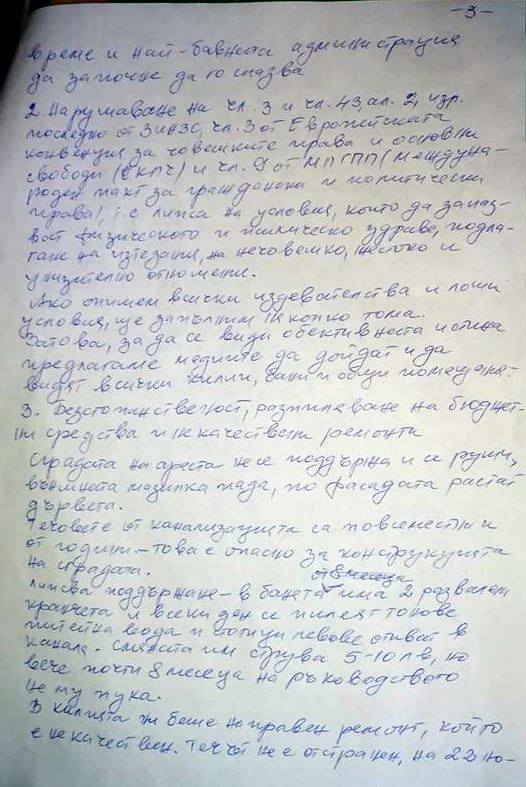 -3-
време и най-бавната администрация
да започне да го спазва
2. Нарушаване на чл. 3 и чл. 43, ал. 2, изр.
последно от ЗИНЗС, чл. 3 от Европейската
конвенция за човешките права и основни
свободи (ЕКПЧ) и чл. 9 от МПГПП (Междуна-
роден пакт за граждански и политически
права), т.е липса на условия, които да запаз-
ват физическото и психическо здраве, подла-
гане на изтезания, на нечовешко, жестоко и
унизително отношение.
Ако опишем всички издевателства и лоши
условия, ще запълним няколко тома.
Затова, за да се види обективната истина
предлагаме медиите да дойдат и да
видят всички килии, бани и общи помещения.
3. Безстопанственост, разпиляване на бюджет-
ни средства и некачествени ремонти
Сградата на ареста не се поддържа и се руши,
външната мазилка пада, по фасадата растат
дървета.
Течовете от канализацията са повсеместни и
от години - това е опасно за конструкцията
на сградата.
от 8 месеца
Липсва поддържане - в банята има 2 развалени
кранчета и всеки ден се пилеят тонове
питейна вода и стотици левове отиват в
канала. Смяната им струва 5-10 лв, но
вече почти 8 месеца на ръководството
не му пука.
В килията ни беше направен ремонт, който
е некачествен. Течът не е отстранен, на 22 но-